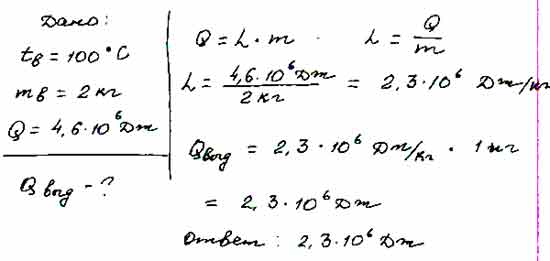 Дано:
tв = 100°C
mв = 2 кг
Q = 4,6·10⁶ Дж
Qвод - ?
Q = L·m    L = Q/m
L = 4,6·10⁶ Дж / 2 кг = 2,3·10⁶ Дж/кг
Qвод = 2,3·10⁶ Дж/кг · 1 кг
= 2,3·10⁶ Дж
Ответ: 2,3·10⁶ Дж